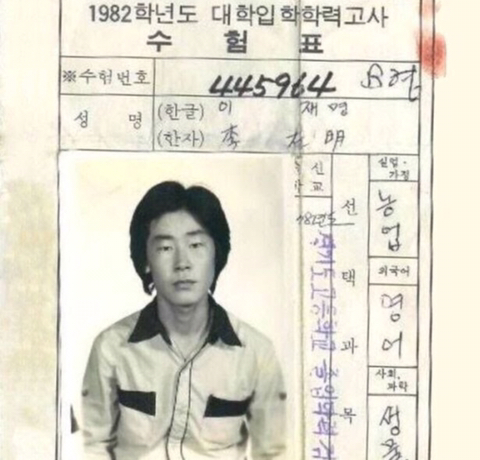 1982학년도 대학입학학력고사
수 험 표
※수험번호 445964 B형
성 명 (한글) 이 재 명
(한자) 李 在 明
선 택 과 목
실업·가정
농업
외국어
영어
사회·과학
생